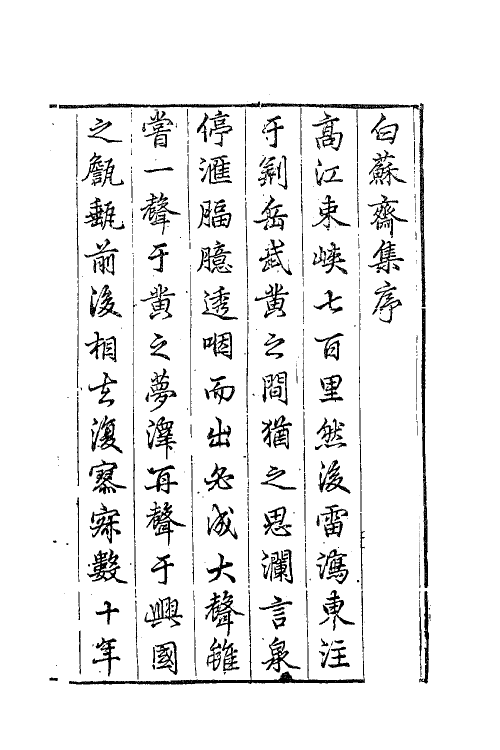 白蘇齋集序
高江束峽七百里然後雷瀉東注
于荆岳武黄之間猶之思瀾言泉
停滙腷臆透咽而出必成大聲雖
嘗一聲于黄之夢澤再聲于興國
之甔甀前後相去復寥寥數十年